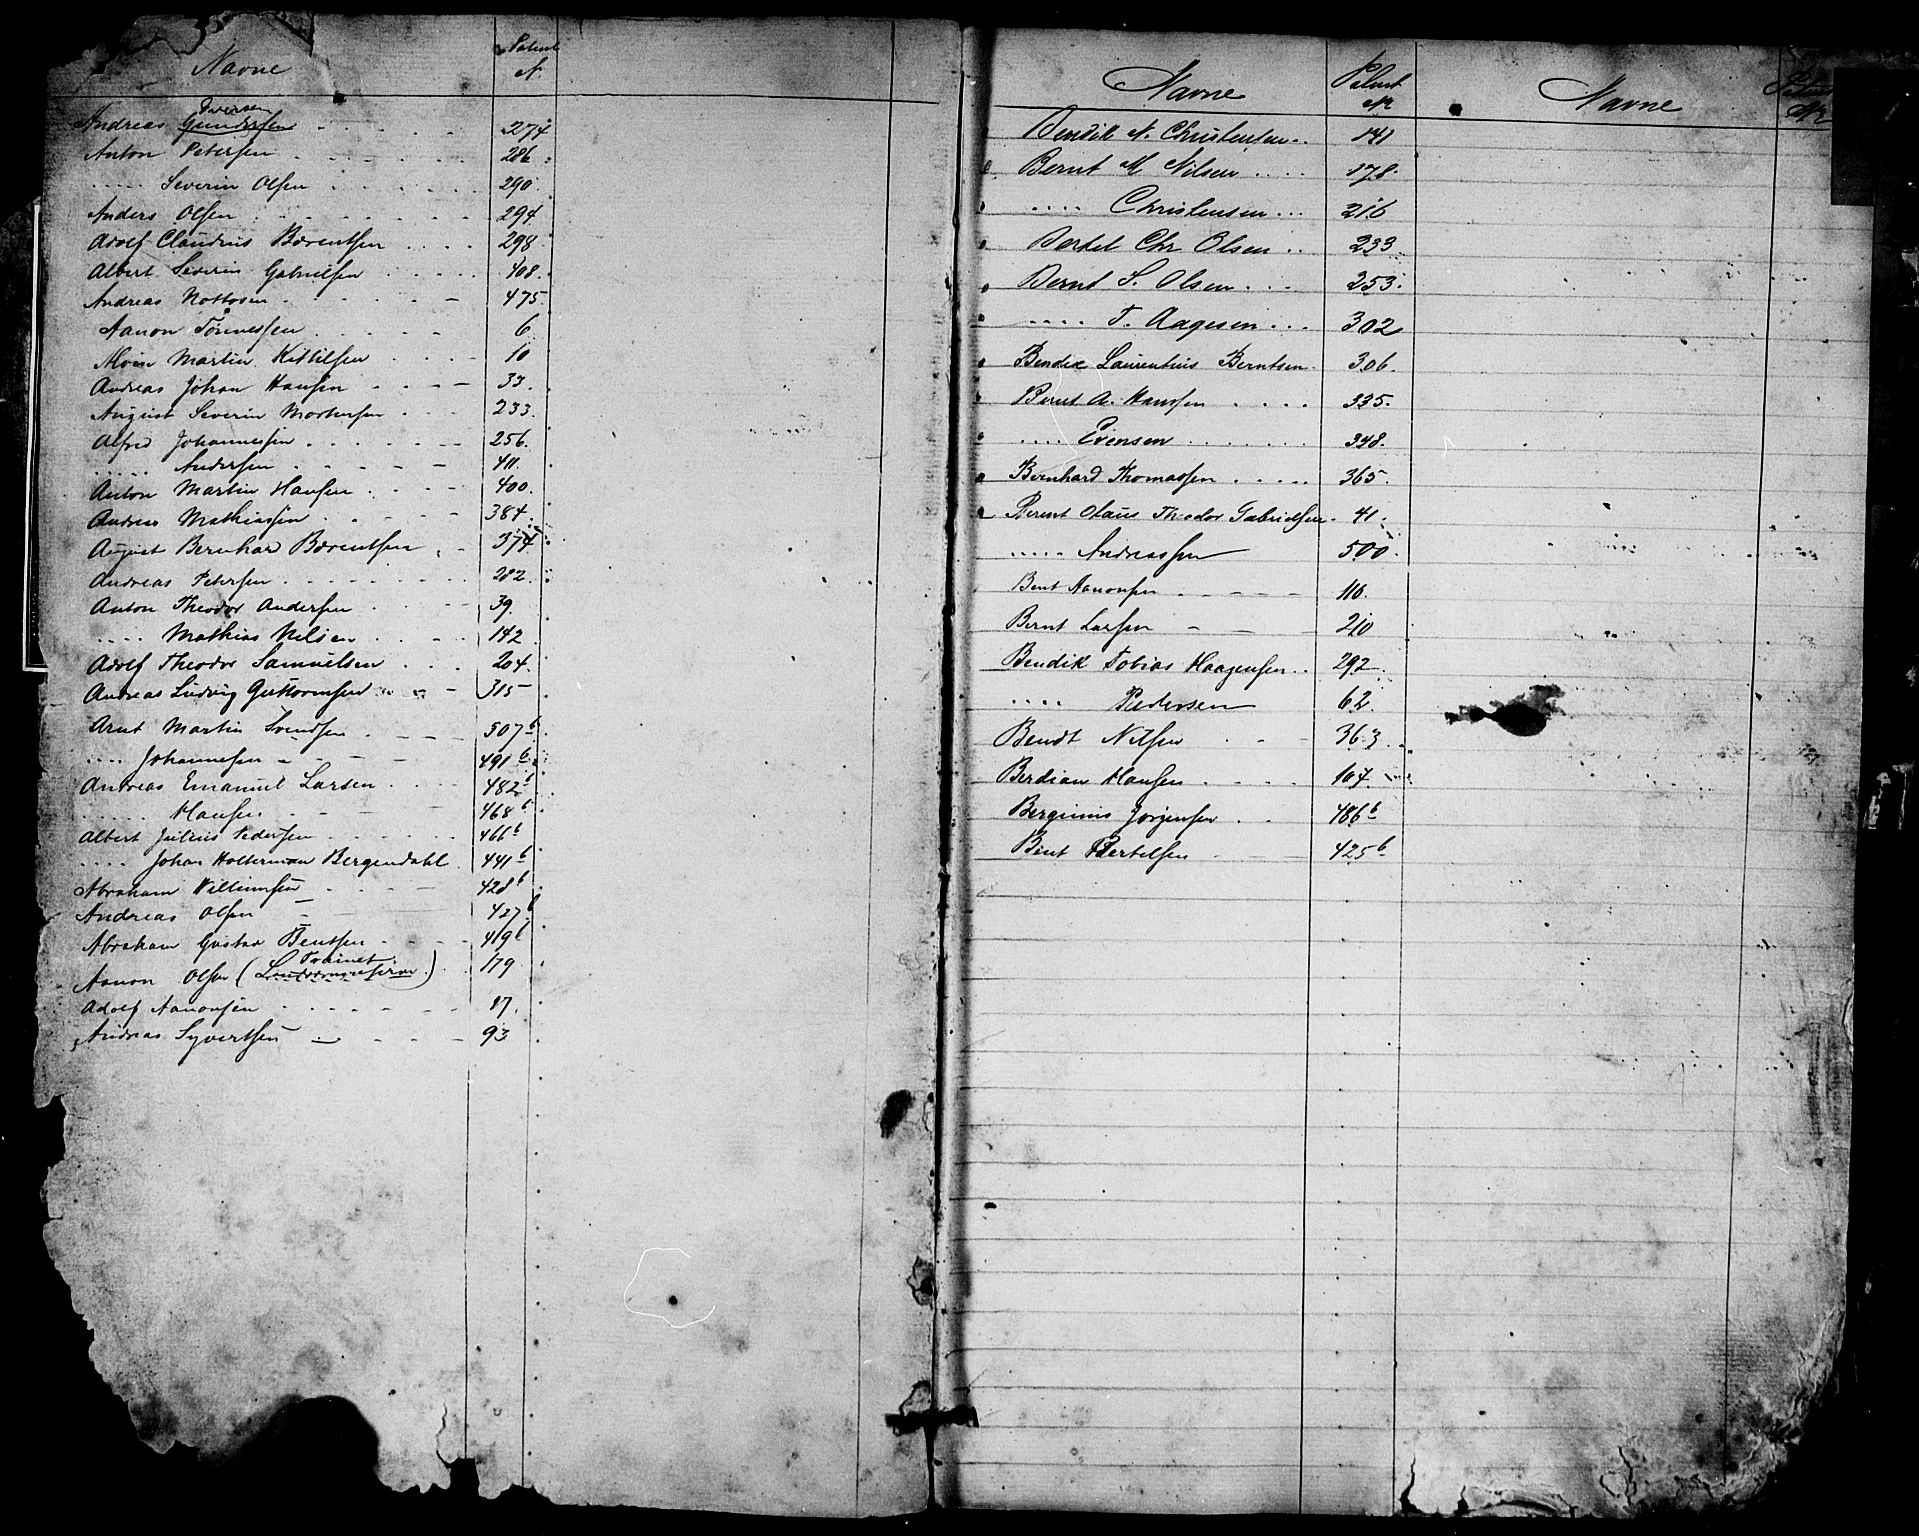 Navne Patent N.
Andreas Gundersen Iversen 274
Anton Petersen 286
..... Severin Olsen 290
Anders Olsen 294
Adolf Claudius Bærentsen 298
Albert Severin Gabrielsen 408
Andreas 475
Aanon Tønnessen 6
Alvin Martin Kittilsen 10
Andreas Johan Hansen 33
August Severin Mortensen 233
Alfred Johannessen 256
..... Andersen 411
Anton Martin Hansen 400
Andreas Mathiassen 384
August Bernhard Bærentsen 374
Andreas Petersen 282
Anton Theodor Andersen 39
.... Mathias Nilsen 142
Adolf Theodor Samuelsen 204
Andreas Ludvig Guttormsen 315
Arnt Martin Svendsen 507 b
.... Johannesen 491 b
Andreas Emanuel Larsen 482 b
...... Hansen 468 b
Albert Julius Pedersen 466 b
.... Johan Holterman Bergendahl 441 b
Abraham Villumsen 428 b
Andreas Olsen 427 b
Abraham Gustav Bentsen 419 b
Aanon Olsen ( ) 179
Adolf Aanonsen 17
Andreas Syvertsen 93
Navne Patent Nr Navne Patent Nr
Bendik N. Christensen 141
Bernt M Nilsen 178
.... Christensen 216
Bertel Chr Olsen 233
Bernt S. Olsen 253
.... T. Aagesen 302
Bendix Laurentius Berntsen 306
Bernt A. Hansen 335
.... Evensen 348
Bernhard Thomassen 365
Bernt Olaus Theodor Gabrielsen 41
..... Andreassen 500
Bent Aanonsen 116
Bernt Larsen 210
Bendik Tobias Haagensen 292
.... Pedersen 62
Bendt Nilsen 363
Berdian Hansen 107
Berginius Jörgensen 486 b
Bent Bertelsen 425 b